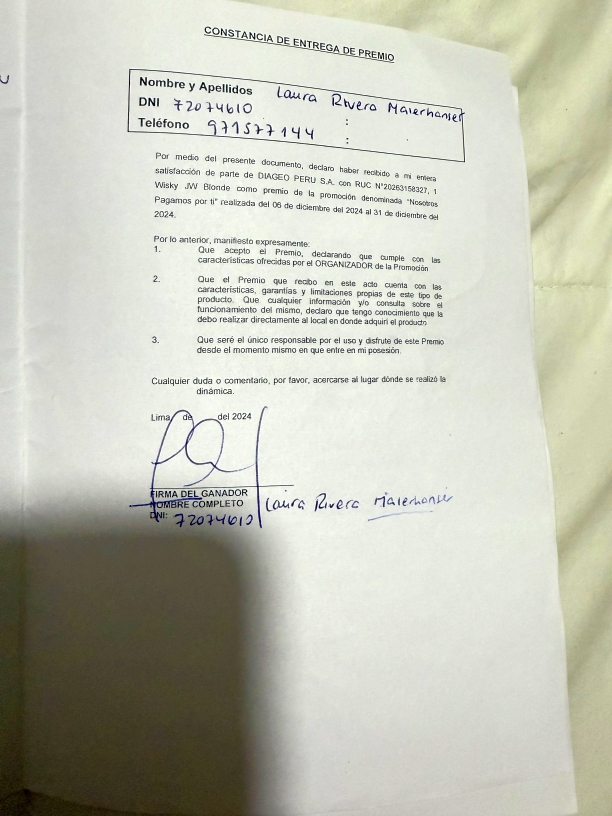 CONSTANCIA DE ENTREGA DE PREMIO
Nombre y Apellidos Laura Rivera Maierhanser
DNI 72074610 :
Teléfono 971577144 :
Por medio del presente documento, declaro haber recibido a mi entera
satisfacción de parte de DIAGEO PERU S.A. con RUC N°20263158327, 1
Wisky JW Blonde como premio de la promoción denominada "Nosotros
Pagamos por ti" realizada del 06 de diciembre del 2024 al 31 de diciembre del
2024.
Por lo anterior, manifiesto expresamente:
1. Que acepto el Premio, declarando que cumple con las
características ofrecidas por el ORGANIZADOR de la Promoción
2. Que el Premio que recibo en este acto cuenta con las
características, garantías y limitaciones propias de este tipo de
producto. Que cualquier información y/o consulta sobre el
funcionamiento del mismo, declaro que tengo conocimiento que la
debo realizar directamente al local en donde adquirí el producto
3. Que seré el único responsable por el uso y disfrute de este Premio
desde el momento mismo en que entre en mi posesión.
Cualquier duda o comentario, por favor, acercarse al lugar dónde se realizó la
dinámica.
Lima, de del 2024
FIRMA DEL GANADOR
NOMBRE COMPLETO Laura Rivera
DNI: 72074610